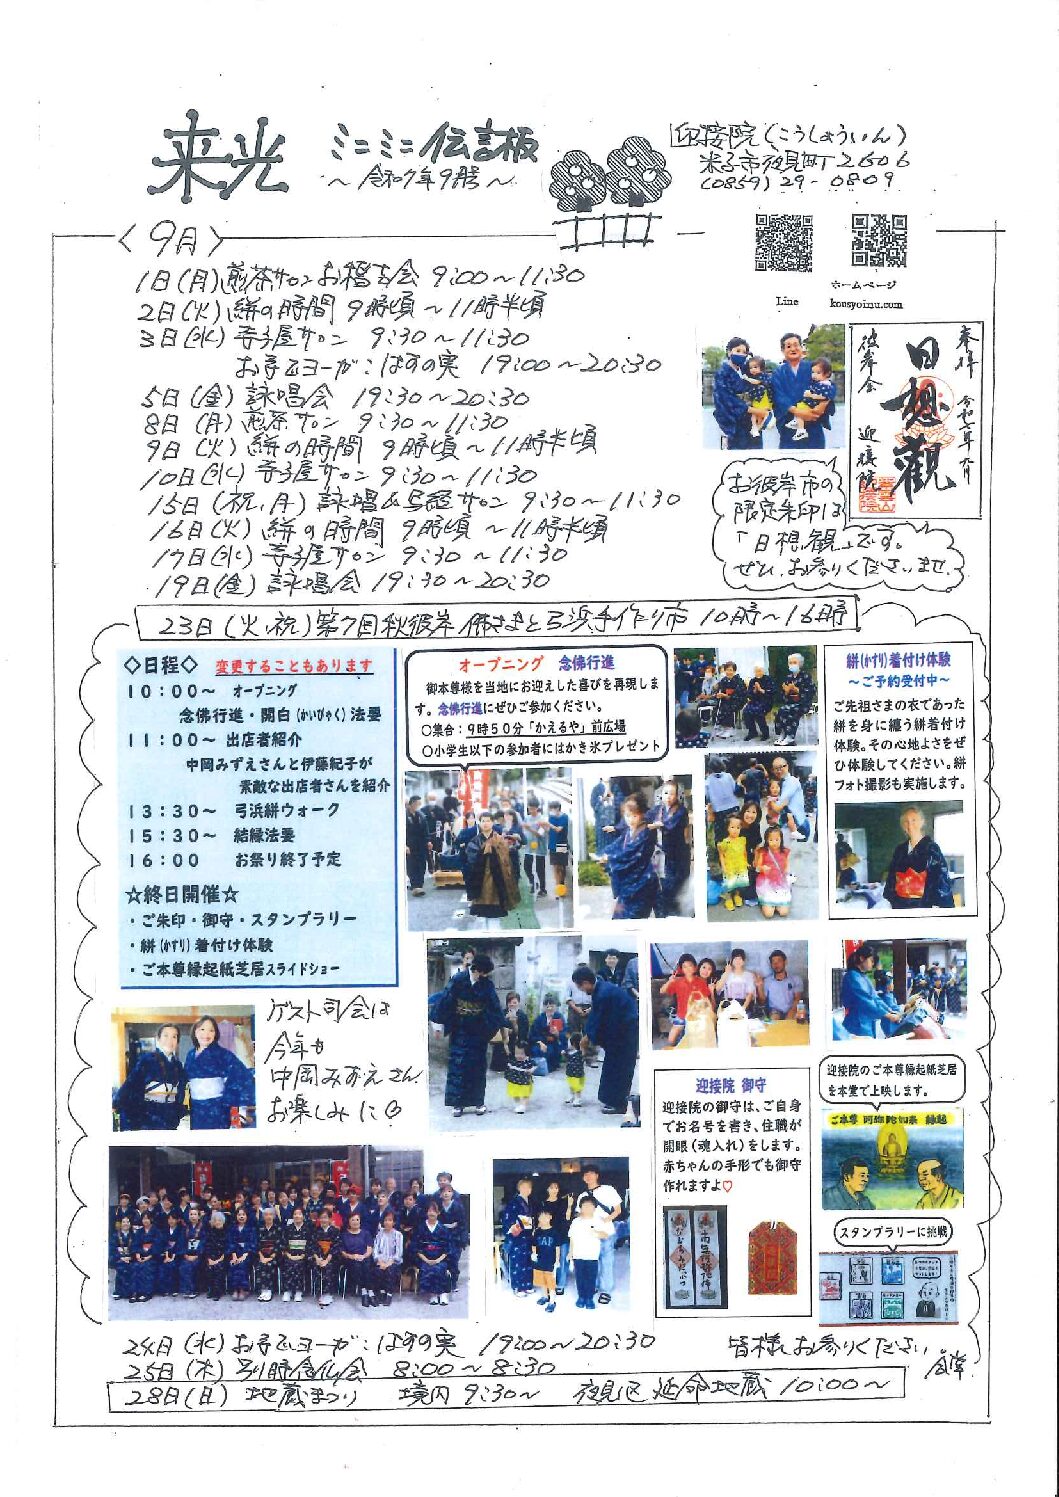 来光 ミニミニ伝言板
～令和7年9月号～
迎接院(こうしょういん)
米子市夜見町2606
(0859)29-0809
ホームページ
Line kousyoinu.com
〈9月〉
1日(月)煎茶サロンお稽古会 9:00～11:30
2日(火)絣の時間 9時頃～11時半頃
3日(水)寺子屋サロン 9:30～11:30
お寺でヨーガ:はすの実 19:00～20:30
5日(金)詠唱会 19:30～20:30
8日(月)煎茶サロン 9:30～11:30
9日(火)絣の時間 9時頃～11時半頃
10日(水)寺子屋サロン 9:30～11:30
15日(祝,月)詠唱&写経サロン 9:30～11:30
16日(火)絣の時間 9時頃～11時半頃
17日(水)寺子屋サロン 9:30～11:30
19日(金)詠唱会 19:30～20:30
奉拝 令和七年九月
日想観
彼岸会 迎接院
お彼岸市の
限定朱印は
「日想観」です。
ぜひ、お参りくださいませ。
23日(火,祝)第7回秋彼岸 佛さまと弓浜手作り市 10時～16時
◇日程◇ 変更することもあります
10:00～ オープニング
念佛行進・開白(かいびゃく)法要
11:00～ 出店者紹介
中岡みずえさんと伊藤紀子が
素敵な出店者さんを紹介
13:30～ 弓浜絣ウォーク
15:30～ 結縁法要
16:00 お祭り終了予定
☆終日開催☆
・ご朱印・御守・スタンプラリー
・絣(かすり)着付け体験
・ご本尊縁起紙芝居スライドショー
オープニング 念佛行進
御本尊様を当地にお迎えした喜びを再現しま
す。念佛行進にぜひご参加ください。
○集合:9時50分「かえるや」前広場
○小学生以下の参加者にはかき氷プレゼント
絣(かすり)着付け体験
～ご予約受付中～
ご先祖さまの衣であった
絣を身に纏う絣着付け
体験。その心地よさをぜ
ひ体験してください。絣
フォト撮影も実施します。
ゲスト司会は
今年も
中岡みずえさん
お楽しみに
迎接院 御守
迎接院の御守は、ご自身
でお名号を書き、住職が
開眼(魂入れ)をします。
赤ちゃんの手形でも御守
作れますよ♡
迎接院のご本尊縁起紙芝居
を本堂で上映します。
ご本尊 阿弥陀如来 縁起
スタンプラリーに挑戦
24日(水)お寺でヨーガ:はすの実 19:00～20:30
25日(木)別時念仏会 8:00～8:30
28日(日)地蔵まつり 境内 9:30～ 夜見区延命地蔵 10:00～
皆様、お参りください。 合掌